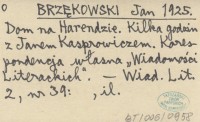 BRZĘKOWSKI Jan 1925.
Dom na Harendzie. Kilka godzin
z Janem Kasprowiczem. Kores-
pondencja własna „Wiadomości
Literackich". — Wiad. Lit.
2, nr 39: , il.